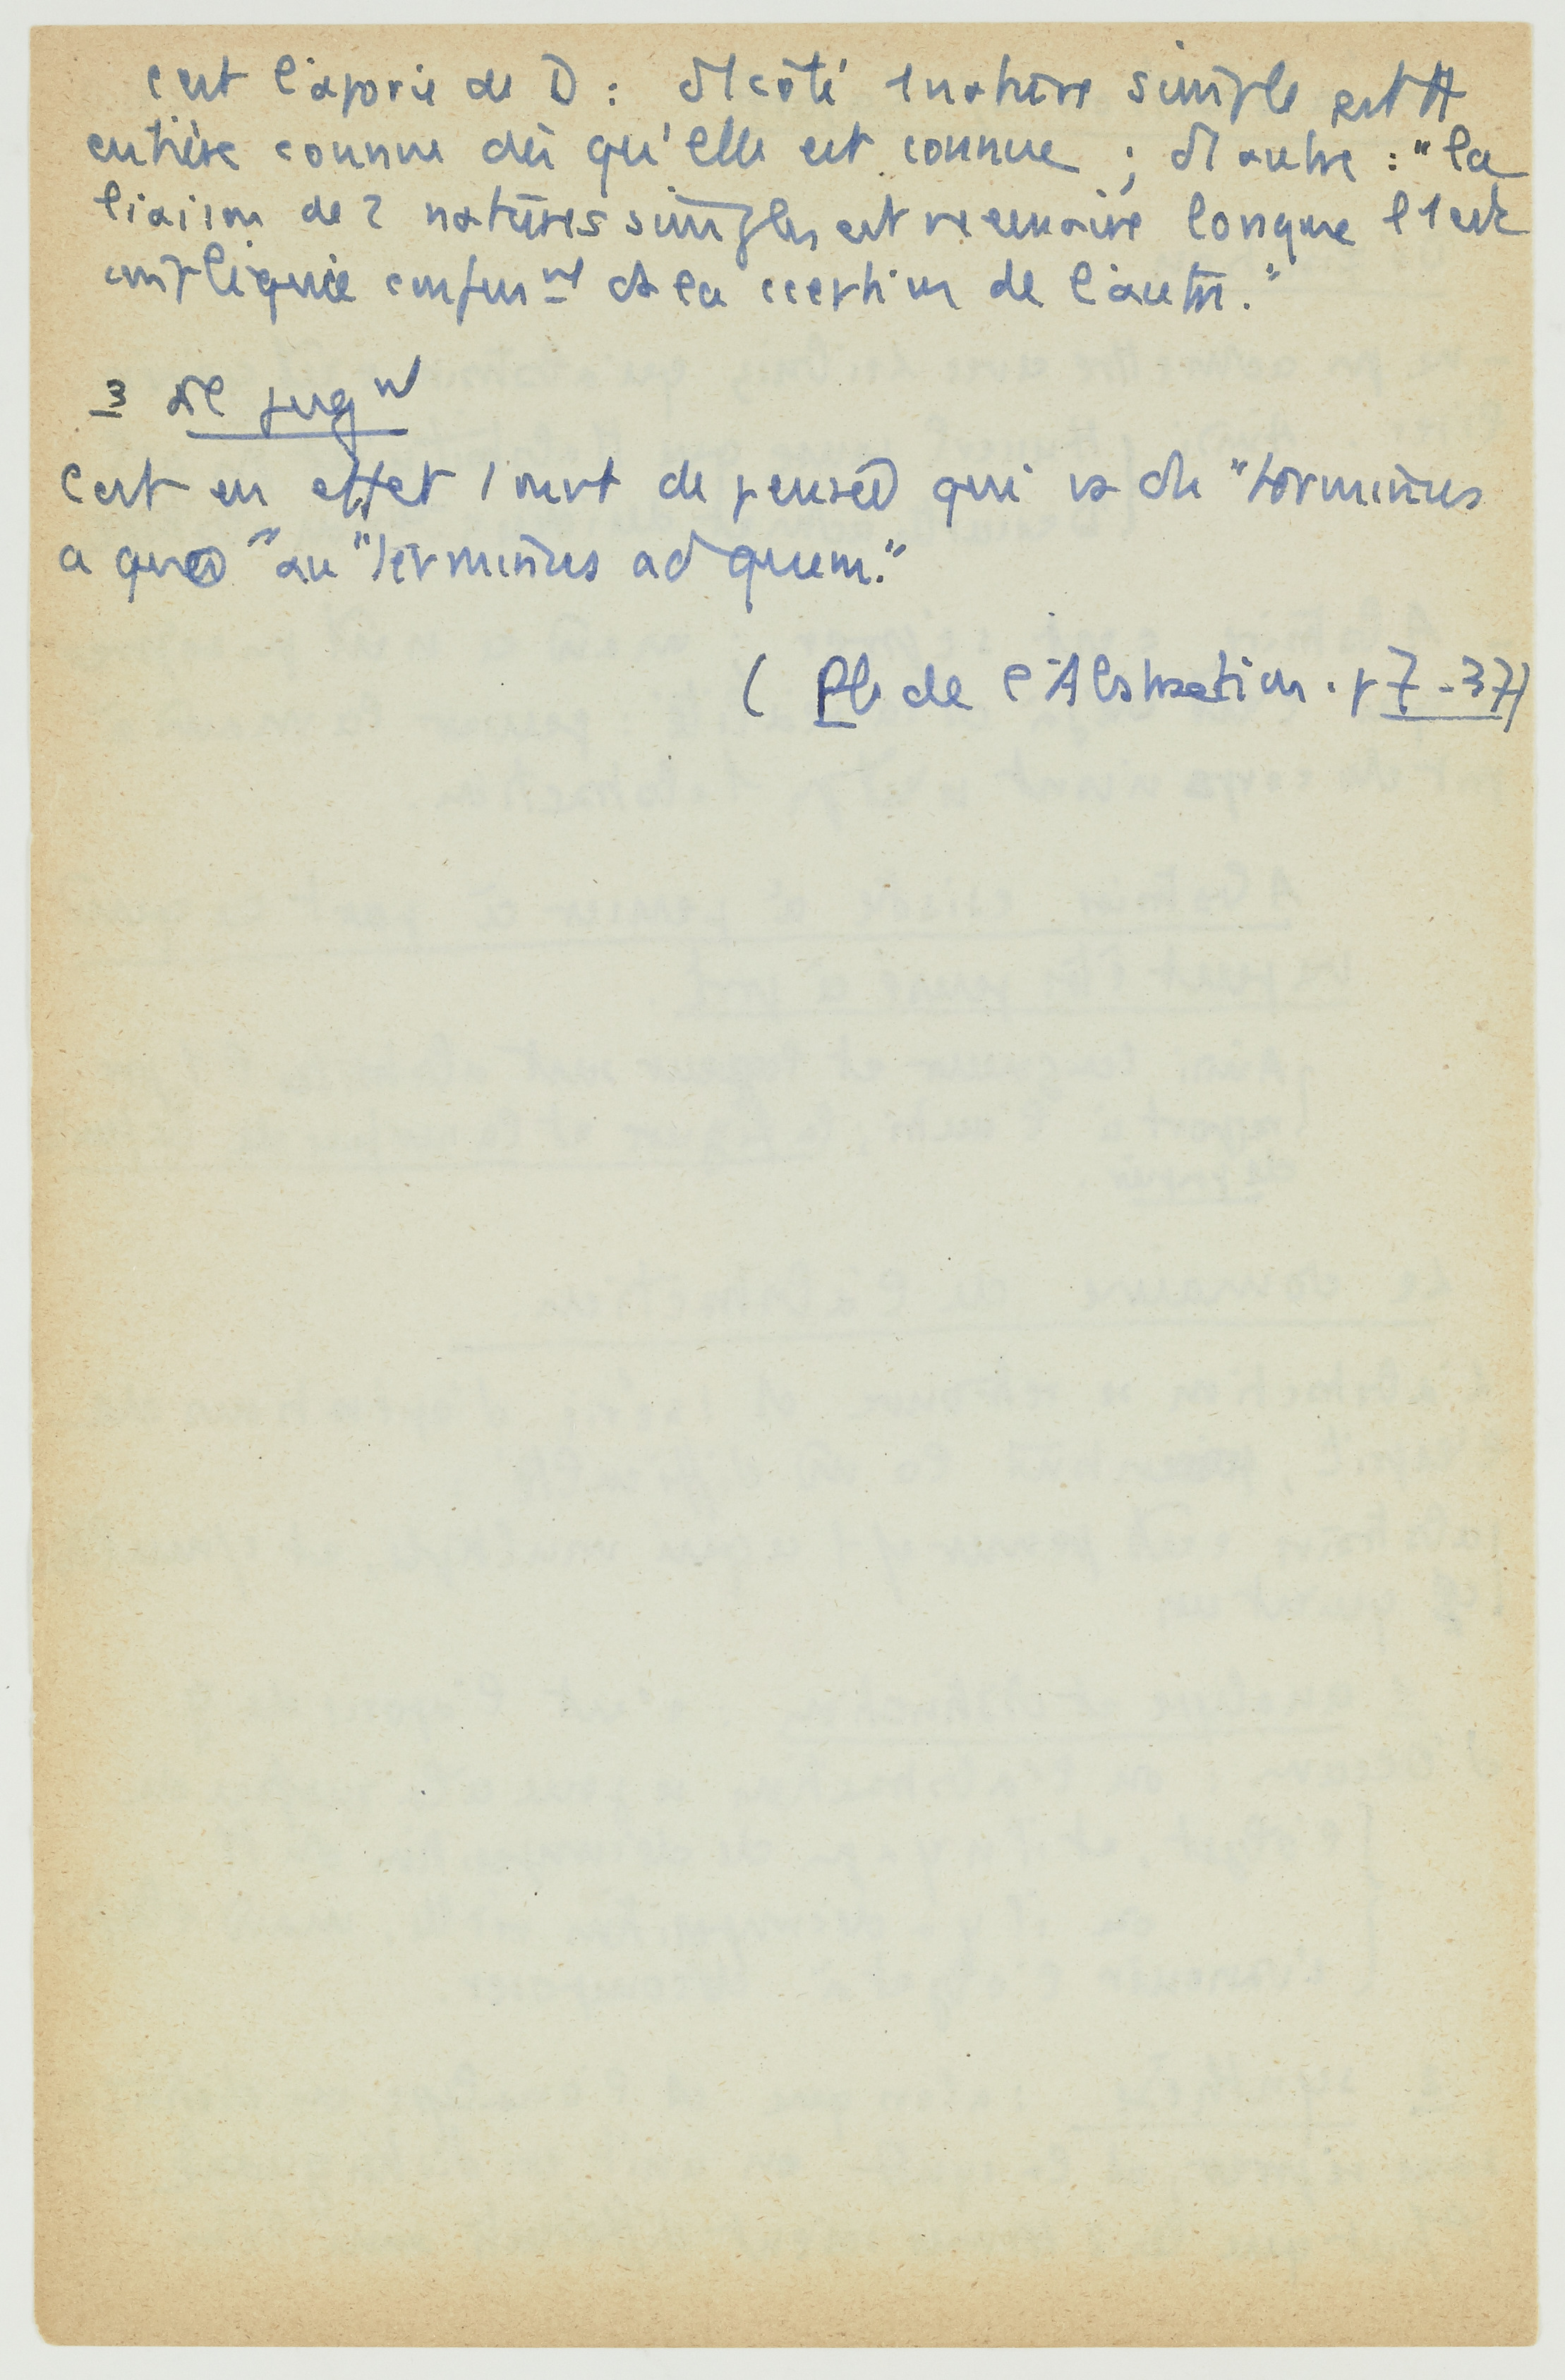 c'est l'aporie de D : d'1 côté 1 nature simple est tt
entière connue dès qu'elle est connue ; d'1 autre : "la
liaison de 2 natures simples est nécessaire lorsque l'1 est
impliquée confusnt ds la cception de l'autre."
3 ds le jugnt
C'est en effet 1 mvt de pensée qui va du "terminus
a quo" au "terminus ad quem."
( Pb de l'Abstraction . p 7-37)